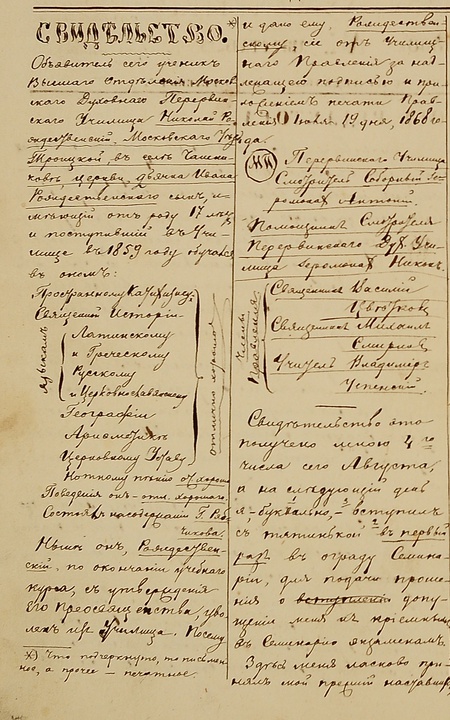 СВИДѢТЕЛЬСТВО. *)
Объявитель сего ученик
Высшаго Отдѣленія Москов
скаго Духовнаго Перервин
скаго Училища Николай Ро
ждественскій, Московскаго уѣзда
Троицкой, въ селѣ
церкви, дьячка Ивана
Рождественскаго сынъ, и-
мѣющій отъ роду 17 лѣтъ
и поступившій въ Учи-
лище въ 1859 году обучался
въ ономъ:
Пространному Катихизису
Священной Исторіи
Языкамъ
Латинскому
и Греческому
Русскому
и Церковнославянскому
Географіи
Ариѳметикѣ
Церковному Уставу
отлично хорошо
Нотному пѣнію оч. хорошо
Поведенія онъ - отл. хорошаго.
Состоялъ на содержаніи Г.
Нынѣ онъ, Рождествен-
скій, по окончаніи учебнаго
курса, съ утвержденія
Его Преосвященства, уво
ленъ изъ Училища. Посему
*) Что подчеркнуто, то письмен-
ное, а прочее — печатное.
и дано ему, Рождествен-
скому, сіе отъ Училищ
наго Правленія за над-
лежащею подписью и при-
ложеніемъ печати Прав-
ленія Іюля 19 дня, 1868 го-
да.
МП
Перервинскаго Училища
Смотритель Соборный Іе-
ромонахъ Антоній.
Помощникъ Смотрителя
Перервинскаго Дух. Учи-
лища Іеромонахъ Никонъ.
Члены Правленія
Священникъ Василій
Цвѣтковъ
Священникъ Михаилъ
Смирновъ
Учитель Владиміръ
Успенскій.
Свидѣтельство это
получено мною 4 го
числа сего Августа,
а на слѣдующій день
я, - буквально, - 3 вступилъ
съ тятинькой 2 въ первый
разъ въ ограду Семина-
ріи, для подачи проше-
нія о вступленіи допу-
щеніи меня къ пріемнымъ
въ Семинарію экзаменамъ.
Здѣсь меня ласково при-
нялъ мой прежній наставникъ,